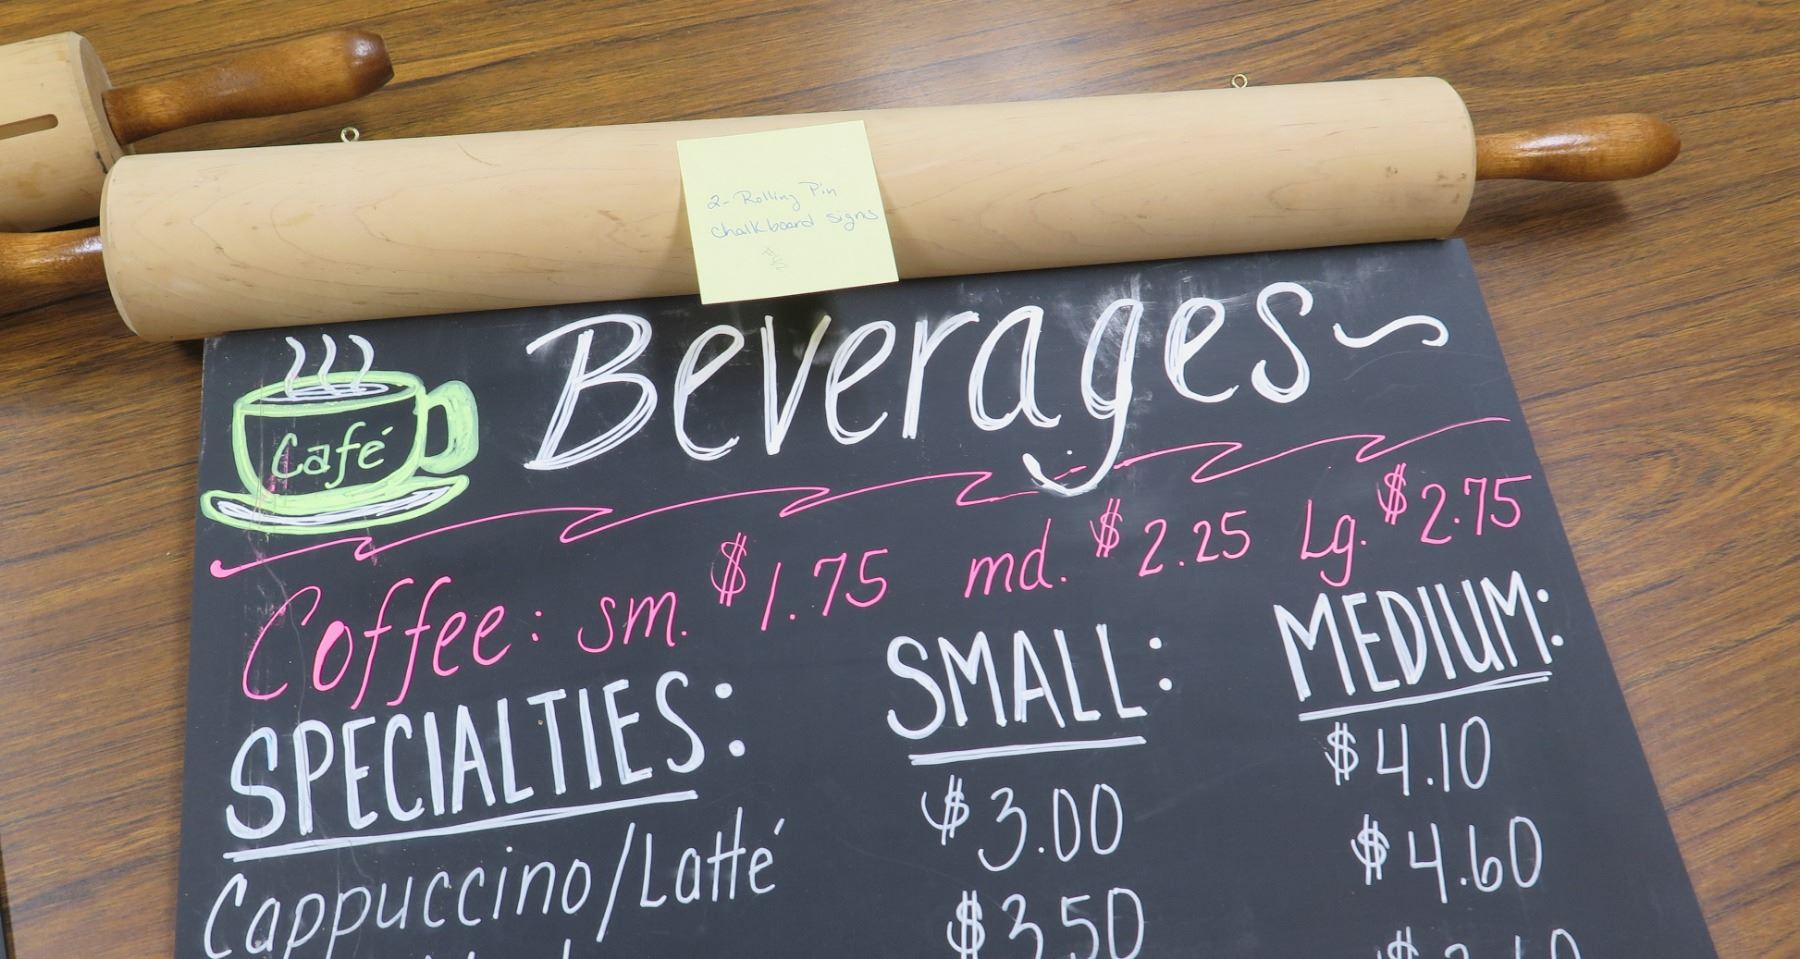 2- Rolling Pin
chalkboard signs
Café
Beverages~
Coffee: sm. $1.75 md. $2.25 Lg. $2.75
SPECIALTIES: SMALL: MEDIUM:
Cappuccino/Latté $3.00 $4.10
$3.50 $4.60